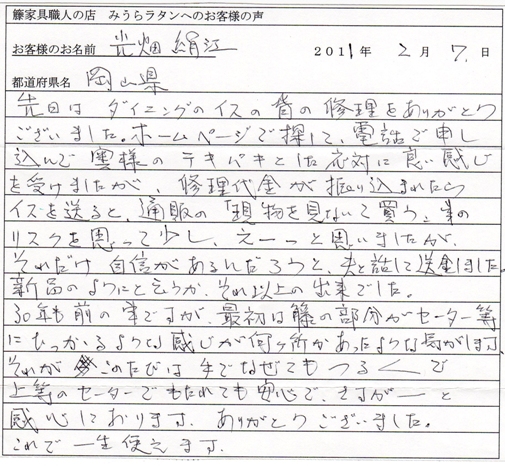 籐家具職人の店　みうらラタンへのお客様の声
お客様のお名前　光畑絹江　2011年　2月　7日
都道府県名　岡山県
先日は ダイニングのイスの背の修理をありがとう
ございました。ホームページで探して、電話で申し
込んで奥様のテキパキとした応対に良い感じ
を受けましたが、修理代金が振り込まれたら
イスを送ると、通販の「現物を見ないで買う」事の
リスクを思って少し、えーっと思いましたが、
それだけ自信があるんだろうと、夫と話して送金しました。
新品のようにと言うか、それ以上の出来でした。
30年も前の事ですが、最初は籐の部分がセーター等
にひっかかるような感じが何ヶ所かあったような気がします、
それが このたびは手でなぜてもつるつるで
上等のセーターでもたれても安心で、さすがーと
感心しております、ありがとうございました。
これで一生使えます、